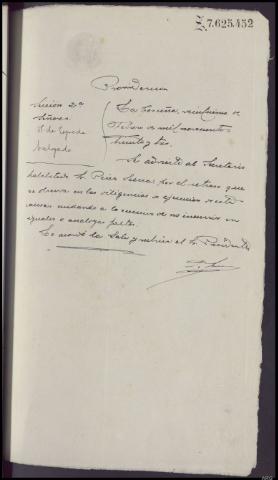 Z.7.625.452
Providencia
Sección 2ª
Señores
de Cepeda
Salgado
La Coruña, veintinueve de
Febrero de mil novecientos
treinta y dos.
Se advierte al Secretario
habilitado Sr. Pérez Serra, por el retraso que
se observa en las diligencias a ejecución de esta
causa, cuidando en lo sucesivo de no incurrir en
iguales o análogas faltas.
Lo acordó la Sala y rubrica el Sr. Presidente